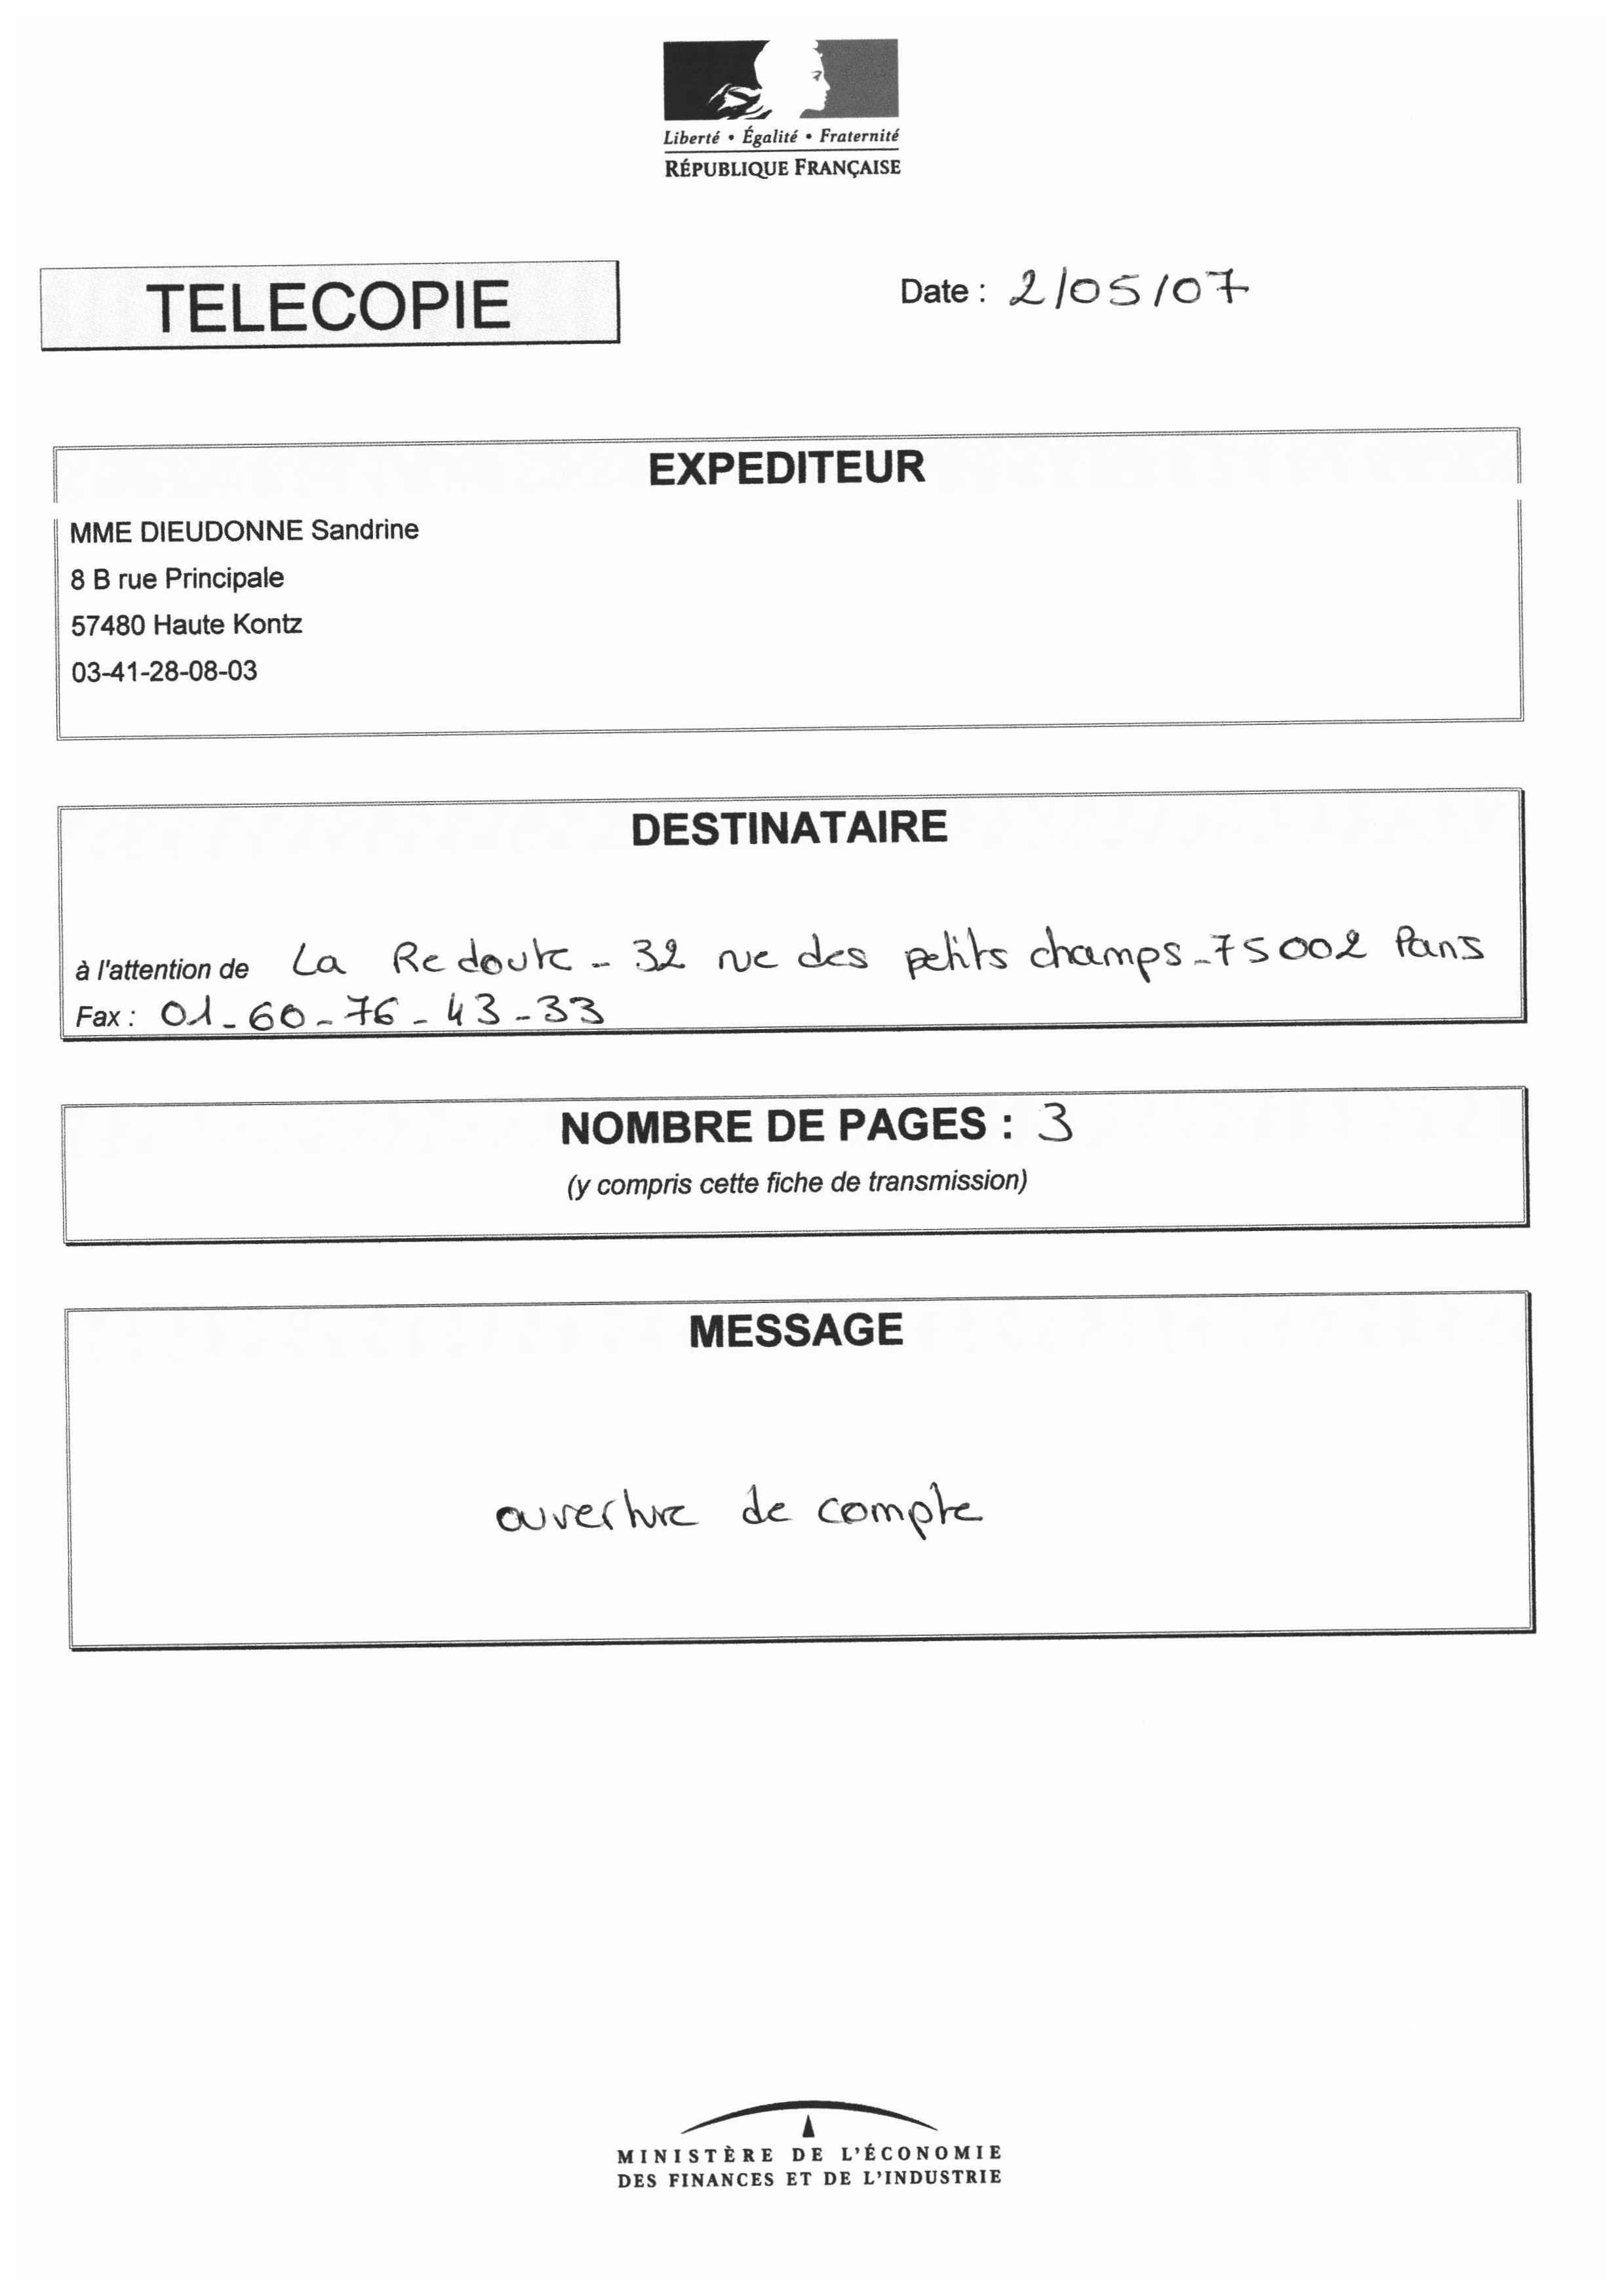 Liberté • Égalité • Fraternité
RÉPUBLIQUE FRANÇAISE
TELECOPIE
Date : 2/05/07
EXPEDITEUR
MME DIEUDONNE Sandrine
8 B rue Principale
57480 Haute Kontz
03-41-28-08-03
DESTINATAIRE
à l'attention de La Redoute - 32 rue des petits champs - 75002 Paris
Fax : 01-60-76-43-33
NOMBRE DE PAGES : 3
(y compris cette fiche de transmission)
MESSAGE
ouverture de compte
MINISTÈRE DE L'ÉCONOMIE
DES FINANCES ET DE L'INDUSTRIE